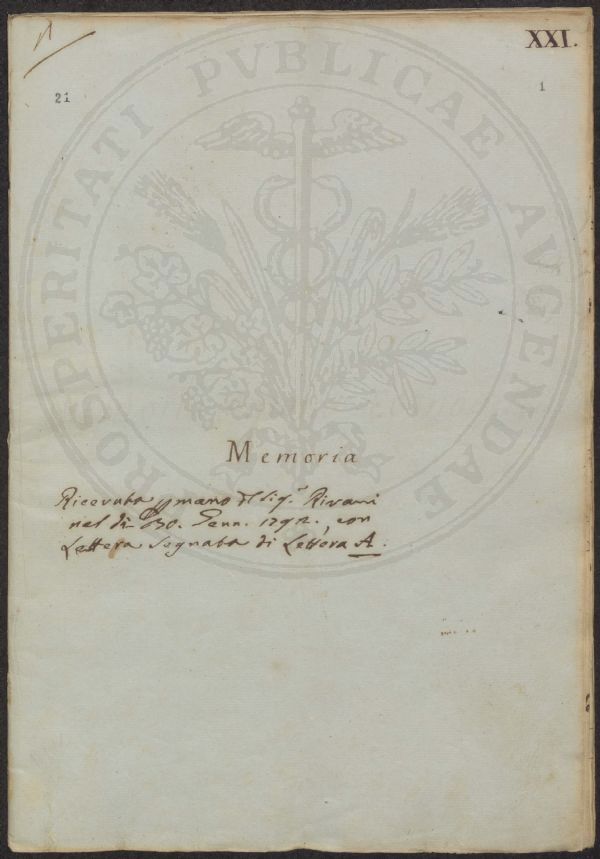 XXI.
21
1
PROSPERITATI PVBLICAE AVGENDAE
Memoria
Ricevuta p mano del Sigr. Rivani
nel dì 30. Genn. 1792., con
Lettera segnata di Lettera A.